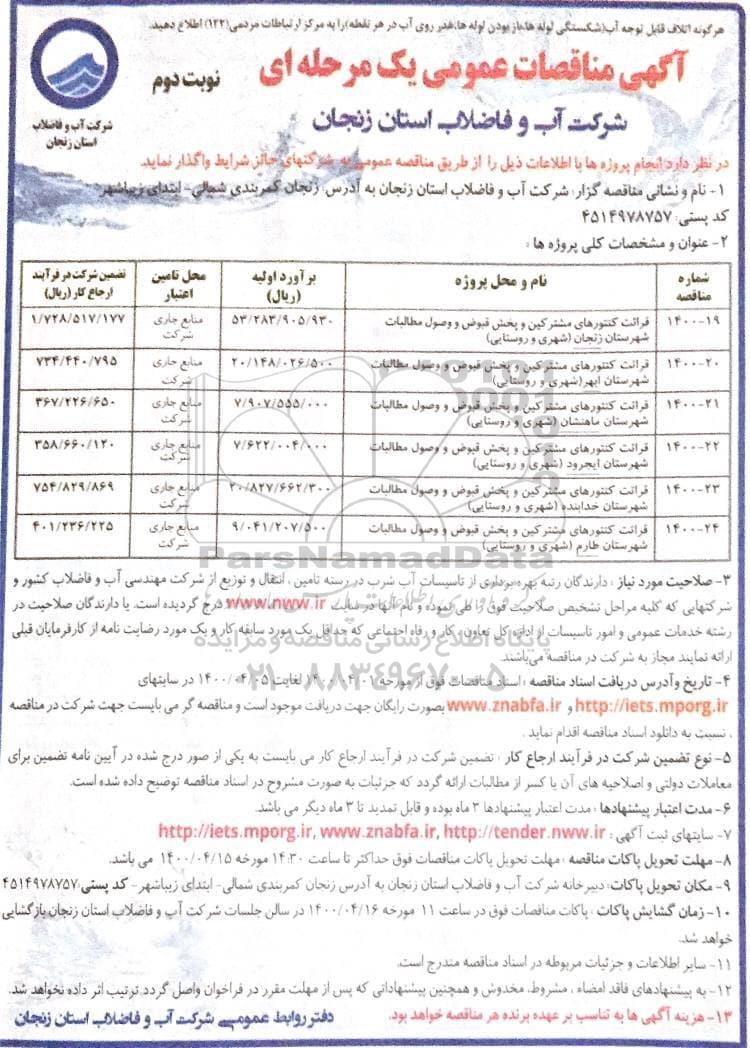 هرگونه اتلاف قابل توجه آب(شکستگی لوله ها،باز بودن لوله ها،هدر روی آب در هر نقطه)را به مرکز ارتباطات مردمی(۱۲۲) اطلاع دهید.
آگهی مناقصات عمومی یک مرحله ای
نوبت دوم
شرکت آب و فاضلاب استان زنجان
شرکت آب و فاضلاب
استان زنجان
در نظر دارد انجام پروژه ها با اطلاعات ذیل را از طریق مناقصه عمومی به شرکتهای حائز شرایط واگذار نماید.
۱- نام و نشانی مناقصه گزار: شرکت آب و فاضلاب استان زنجان به آدرس: زنجان کمربندی شمالی- ابتدای زیباشهر
کد پستی: ۴۵۱۴۹۷۸۷۵۷
۲- عنوان و مشخصات کلی پروژه ها :
شماره مناقصه | نام و محل پروژه | برآورد اولیه (ریال) | محل تامین اعتبار | تضمین شرکت در فرآیند ارجاع کار (ریال)
۱۴۰۰-۱۹ | قرائت کنتورهای مشترکین و پخش قبوض و وصول مطالبات شهرستان زنجان (شهری و روستایی) | ۵۳/۲۸۳/۹۰۵/۹۳۰ | منابع جاری شرکت | ۱/۷۲۸/۵۱۷/۱۷۷
۱۴۰۰-۲۰ | قرائت کنتورهای مشترکین و پخش قبوض و وصول مطالبات شهرستان ابهر(شهری و روستایی) | ۲۰/۱۴۸/۰۲۶/۵۰۰ | منابع جاری شرکت | ۷۳۴/۴۴۰/۷۹۵
۱۴۰۰-۲۱ | قرائت کنتورهای مشترکین و پخش قبوض و وصول مطالبات شهرستان ماهنشان (شهری و روستایی) | ۷/۹۰۷/۵۵۵/۰۰۰ | منابع جاری شرکت | ۳۶۷/۲۲۶/۶۵۰
۱۴۰۰-۲۲ | قرائت کنتورهای مشترکین و پخش قبوض و وصول مطالبات شهرستان ایجرود (شهری و روستایی) | ۷/۶۲۲/۰۰۴/۰۰۰ | منابع جاری شرکت | ۳۵۸/۶۶۰/۱۲۰
۱۴۰۰-۲۳ | قرائت کنتورهای مشترکین و پخش قبوض و وصول مطالبات شهرستان خدابنده (شهری و روستایی) | ۲۰/۸۲۷/۶۶۲/۳۰۰ | منابع جاری شرکت | ۷۵۴/۸۲۹/۸۶۹
۱۴۰۰-۲۴ | قرائت کنتورهای مشترکین و پخش قبوض و وصول مطالبات شهرستان طارم (شهری و روستایی) | ۹/۰۴۱/۲۰۷/۵۰۰ | منابع جاری شرکت | ۴۰۱/۲۳۶/۲۲۵
ParsNamadData
۳- صلاحیت مورد نیاز : دارندگان رتبه بهره برداری از تاسیسات آب شرب در رسته تامین ، انتقال و توزیع از شرکت مهندسی آب و فاضلاب کشور و
شرکتهایی که کلیه مراحل تشخیص صلاحیت فوق را طی نموده و نام آنها در سایت www.nww.ir درج گردیده است. یا دارندگان صلاحیت در
رشته خدمات عمومی و امور تاسیسات از اداره کل تعاون، کار و رفاه اجتماعی که حداقل یک مورد سابقه کار و یک مورد رضایت نامه از کارفرمایان قبلی
پایگاه اطلاع رسانی مناقصه و مزایده
ارائه نمایند مجاز به شرکت در مناقصه می‌باشند.
۰۲۱-۸۸۳۴۹۶۷۰-۵
۴- تاریخ وآدرس دریافت اسناد مناقصه : اسناد مناقصات فوق از مورخه ۱۴۰۰/۰۴/۰۱ لغایت ۱۴۰۰/۰۴/۰۵ در سایتهای
http://iets.mporg.ir و www.znabfa.ir بصورت رایگان جهت دریافت موجود است و مناقصه گر می بایست جهت شرکت در مناقصه
، نسبت به دانلود اسناد مناقصه اقدام نماید .
۵- نوع تضمین شرکت در فرآیند ارجاع کار : تضمین شرکت در فرآیند ارجاع کار می بایست به یکی از صور درج شده در آیین نامه تضمین برای
معاملات دولتی و اصلاحیه های آن یا کسر از مطالبات ارائه گردد که جزئیات به صورت مشروح در اسناد مناقصه توضیح داده شده است.
۶- مدت اعتبار پیشنهادها : مدت اعتبار پیشنهادها ۳ ماه بوده و قابل تمدید تا ۳ ماه دیگر می باشد.
۷- سایتهای ثبت آگهی : http://iets.mporg.ir, www.znabfa.ir, http://tender.nww.ir
۸- مهلت تحویل پاکات مناقصه : مهلت تحویل پاکات مناقصات فوق حداکثر تا ساعت ۱۴:۳۰ مورخه ۱۴۰۰/۰۴/۱۵ می باشد.
۹- مکان تحویل پاکات: دبیرخانه شرکت آب و فاضلاب استان زنجان به آدرس زنجان کمربندی شمالی- ابتدای زیباشهر- کد پستی:۴۵۱۴۹۷۸۷۵۷
۱۰- زمان گشایش پاکات : پاکات مناقصات فوق در ساعت ۱۱ مورخه ۱۴۰۰/۰۴/۱۶ در سالن جلسات شرکت آب و فاضلاب استان زنجان بازگشایی
خواهد شد.
۱۱- سایر اطلاعات و جزئیات مربوطه در اسناد مناقصه مندرج است.
۱۲- به پیشنهادهای فاقد امضاء ، مشروط، مخدوش و همچنین پیشنهاداتی که پس از مهلت مقرر در فراخوان واصل گردد ترتیب اثر داده نخواهد شد.
۱۳- هزینه آگهی ها به تناسب بر عهده برنده هر مناقصه خواهد بود.
دفتر روابط عمومی شرکت آب و فاضلاب استان زنجان